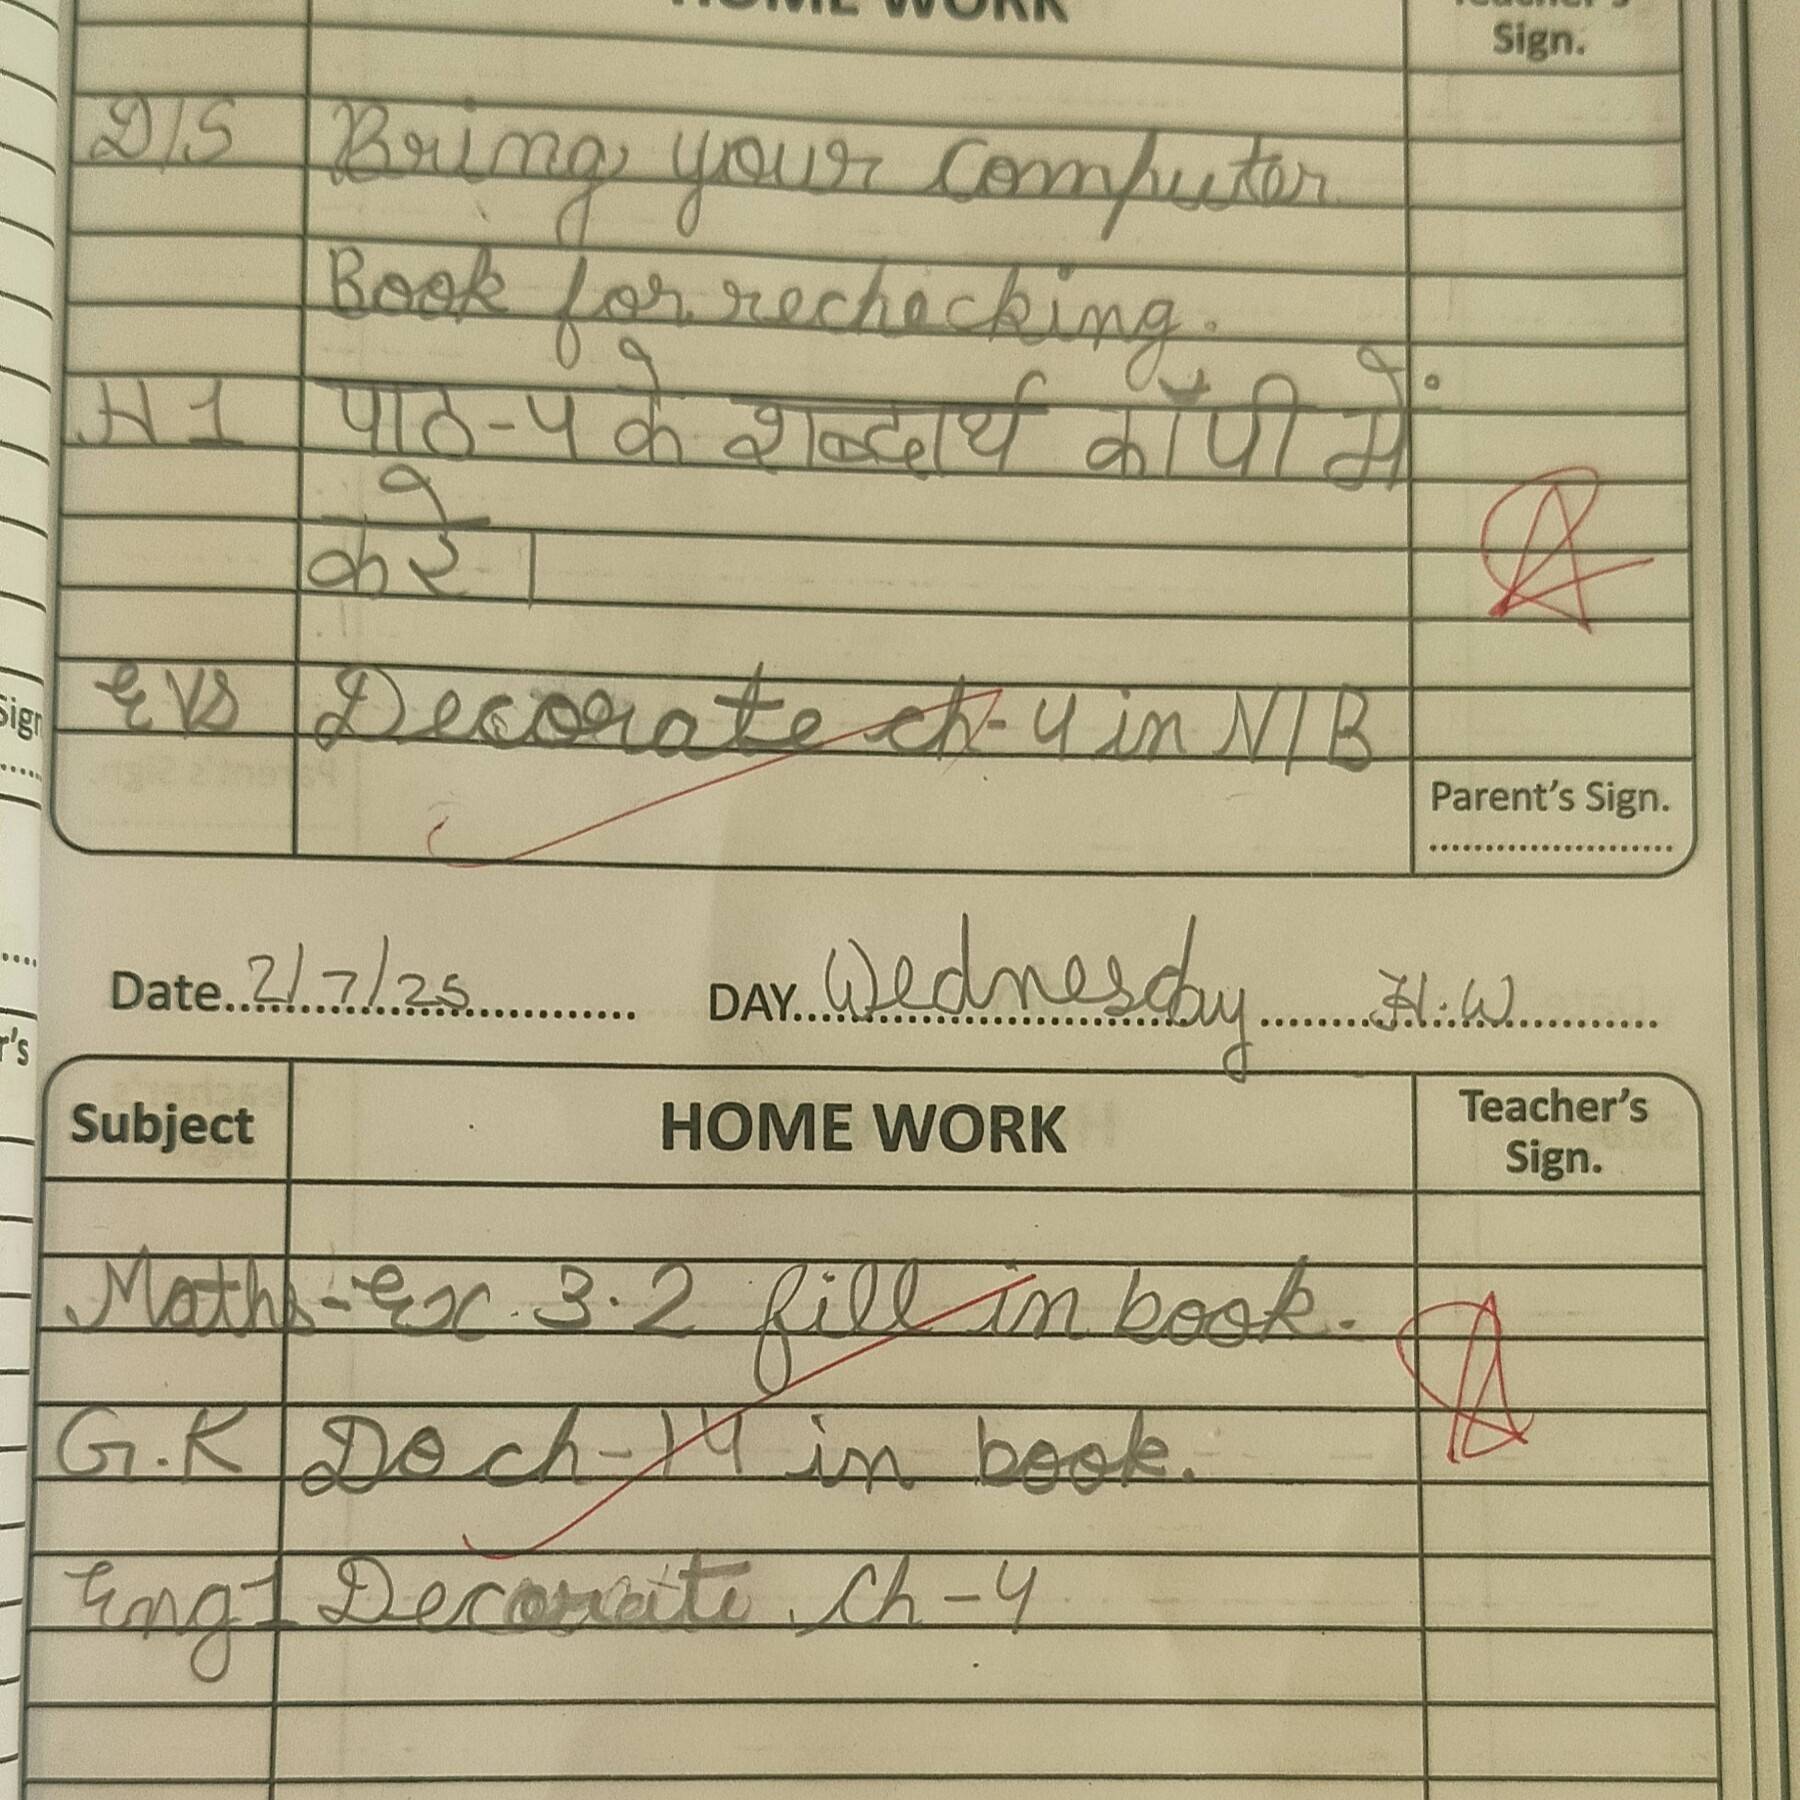 HOME WORK
Teacher's
Sign.
D/S Bring your computer
Book for rechecking.
H1 पाठ-4 के शब्दार्थ कॉपी में
करे।
EVS Decorate ch-4 in N/B
Sign
Parent's Sign.
Date 2/7/25 DAY Wednesday H.W
r's
Subject HOME WORK Teacher's
Sign.
Maths-Ex. 3.2 fill in book.
G.K Do ch-14 in book.
Eng-1 Decorate ch-4